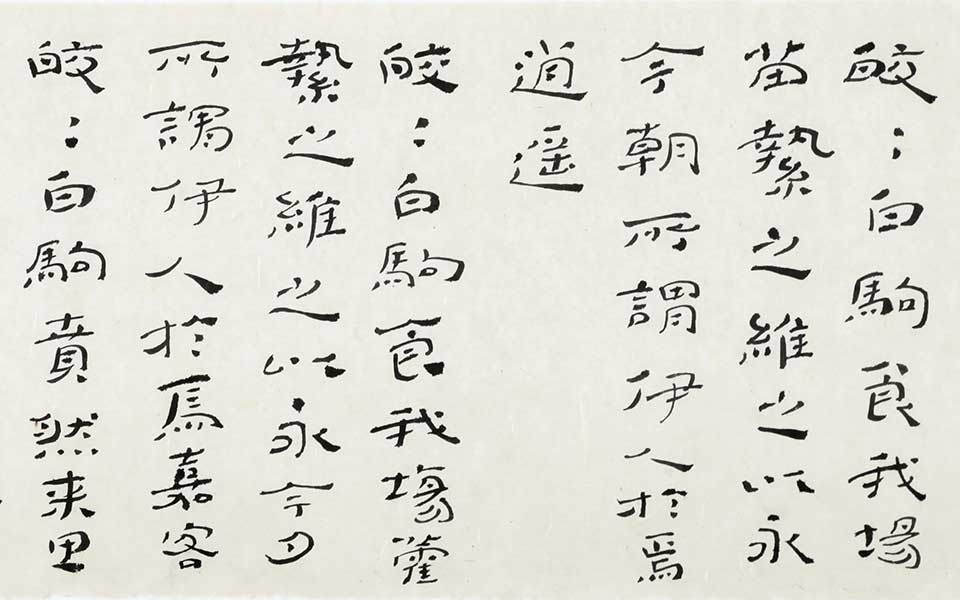 皎〻白駒食我場
苗縶之維之以永
今朝所謂伊人於焉
逍遥
皎〻白駒食我場藿
縶之維之以永今夕
所謂伊人於焉嘉客
皎〻白駒賁然来思